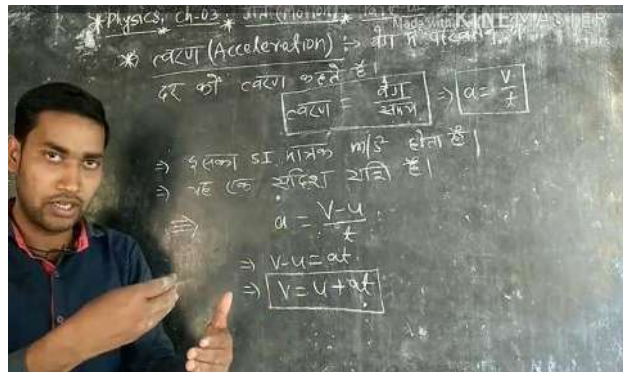 * Physics, Ch-03 * गति (Motion)
Made with KINEMASTER
* त्वरण (Acceleration) :→ वेग में परिवर्तन
दर को त्वरण कहते हैं।
त्वरण = वेग/समय ⇒ a = v/t
⇒ इसका S.I मात्रक m/s² होता है।
⇒ यह एक सदिश राशि है।
⇒ a = v-u/t
⇒ v-u = at
⇒ v = u + at